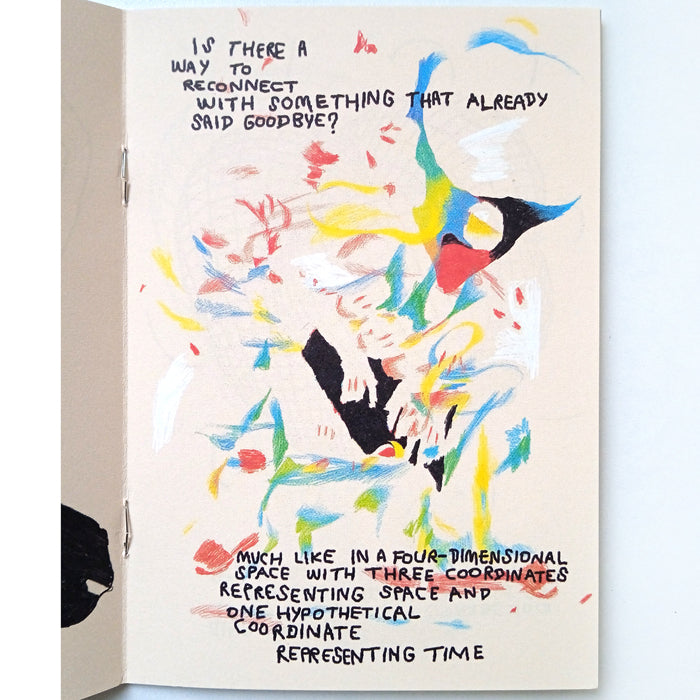 IS THERE A
WAY TO
RECONNECT
WITH SOMETHING THAT ALREADY
SAID GOODBYE?
MUCH LIKE IN A FOUR-DIMENSIONAL
SPACE WITH THREE COORDINATES
REPRESENTING SPACE AND
ONE HYPOTHETICAL
COORDINATE
REPRESENTING TIME